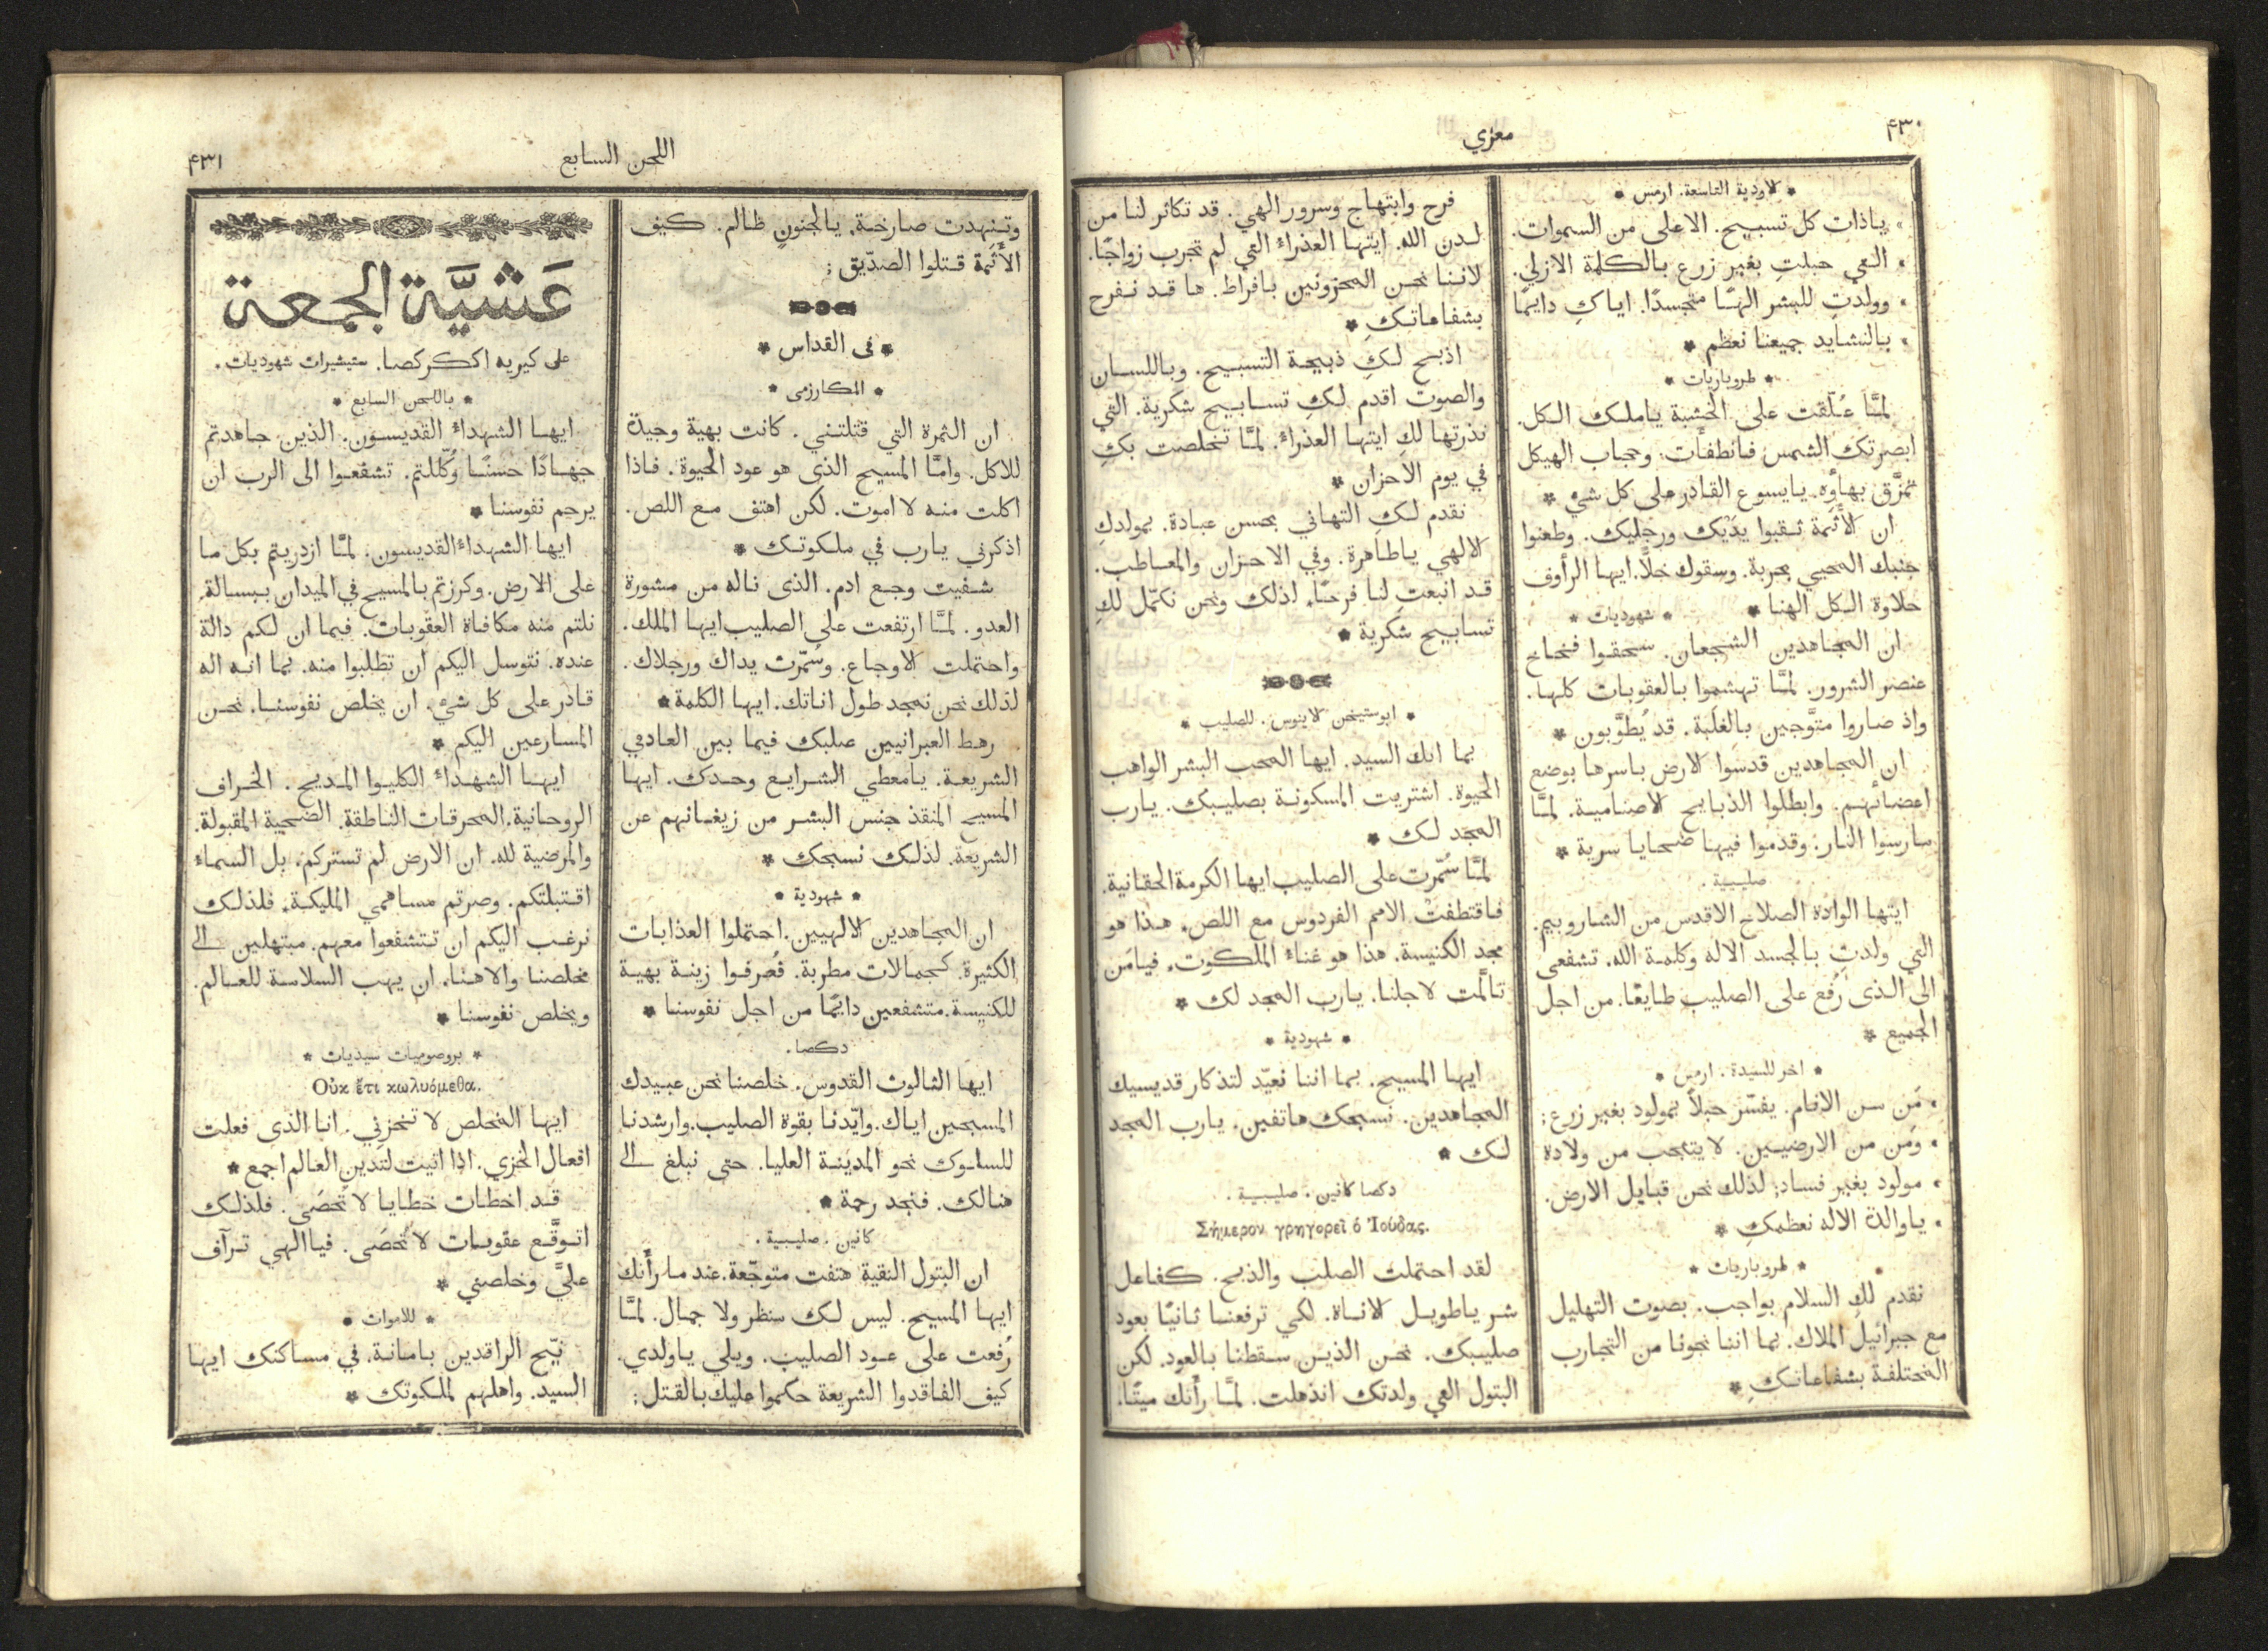 ۴۳۰
معزي
* الاودية التاسعة. ارمس *
• ياذات كل تسبيح. الاعلى من السموات.
• التي حبلتِ بغير زرع بالكلمة الازلي.
• وولدتِ للبشر الهًا متجسدًا. اياكِ دايمًا
• بالنشايد جميعنا نعظم *
* طروباريات *
لمَّا عُلّقت على الخشبة ياملك الكل.
ابصرتك الشمس فانطفأَت. وحجاب الهيكل
تمزَّق بهاؤه. يايسوع القادر على كل شيء *
ان الأَثمة ثقبوا يدَيْك ورجليك. وطعنوا
جنبك المحيي بحربة. وسقوك خلًّا. ايها الرأوف
حلاوة الكل الهنا *
* شهوديات *
ان المجاهدين الشجعان. سحقوا فخاخ
عنصر الشرور. لمَّا تهشموا بالعقوبات كلها.
واذ صاروا متوَّجين بالغلَبة. قد يُطوَّبون *
ان المجاهدين قدسوا الارض باسرها بوضع
اعضائهم. وابطلوا الذبايح الاصنامية. لمَّا
مارسوا النار. وقدموا فيها ضحايا سرية *
صليبية .
ايتها الوادة الصلاح الاقدس من الشاروبيم.
التي ولدتِ بالجسد الاله وكلمة الله. تشفعى
الى الذى رُفع على الصليب طايعًا. من اجل
الجميع *
* اخر للسيدة . ارمس *
• مَن سن الانام. يفسّر حبلاً بمولود بغير زرع؛
• ومَن من الارضيين. لا يتعجب من ولادة
• مولود بغير فساد؛ لذلك نحن قبايل الارض.
• ياوالدة الاله نعظمكِ *
* طروباريات *
نقدم لكِ السلام بواجب. بصوت التهليل
مع جبرائيل الملاك. بما اننا نجونا من التجارب
المختلفة بشفاعاتكِ *
فرح وابتهاج وسرور الهي. قد تكاثر لنا من
لدن الله. ايتها العذراءُ التي لم تجرب زواجًا.
لاننا نحن المحزونين بافراط. ها قد نفرح
بشفاعاتكِ *
اذبح لكِ ذبيحة التسبيح. وباللسان
والصوت اقدم لكِ تسابيح شكرية. التي
نذرتها لكِ ايتها العذراءُ. لمَّا تخلصت بكِ
في يوم الاحزان *
نقدم لكِ التهاني بحسن عبادة. بمولدكِ
الالهي ياطاهرة. وفي الاحزان والمعاطب.
قد انبعتِ لنا فرحًا. لذلك ونحن نكمّل لكِ
تسابيح شكرية *
* ابوستيخن كاينوس . للصليب *
بما انك السيد. ايها المحب البشر الواهب
الحيوة. اشتريت المسكونة بصليبك. يارب
المجد لك *
لمَّا سُمّرت على الصليب ايها الكرمة الحقانية.
فاقتطفتْ الامم الفردوس مع اللص. هذا هو
مجد الكنيسة. هذا هو غناءُ الملكوت. فيامَن
تالَّمت لاجلنا. يارب المجد لك *
* شهودية *
ايها المسيح. بما اننا نعيّد لتذكار قديسيك
المجاهدين. نسبحك هاتفين. يارب المجد
لك *
دكصا كانين . صليبية .
Σήμερον γρηγορεῖ ὁ Ἰούδας.
لقد احتملت الصلب والذبح. كفاعل
شر ياطويل الاناة. لكي ترفعنا ثانيًا بعود
صليبك. نحن الذين سقطنا بالعود. لكن
البتول التي ولدتك انذهلت. لمَّا رأَتك ميتًا.
۴۳۱
اللحن السابع
وتنهدت صارخة. يالجنونٍ ظالم. كيف
الأَثَمة قتلوا الصدّيق؛
* فى القداس *
* المكارزمى *
ان الثمرة التي قتلتني. كانت بهية وجيدة
للاكل. وامَّا المسيح الذى هو عود الحيوة. فاذا
اكلت منه لا اموت. لكن اهتف مع اللص.
اذكرني يارب في ملكوتك *
شفيت وجع ادم. الذى ناله من مشورة
العدو. لمَّا ارتفعت على الصليب ايها الملك.
واحتملت الاوجاع. وسُمّرت يداك ورجلاك.
لذلك نحن نمجد طول اناتك. ايها الكلمة *
رهط العبرانيين صلبك فيما بين العادمي
الشريعة. يامعطي الشرايع وحدك. ايها
المسيح المنقذ جنس البشر من زيغانهم عن
الشريعة. لذلك نسبحك *
* شهودية *
ان المجاهدين الالهيين. احتملوا العذابات
الكثيرة. كجمالات مطربة. فعُرفوا زينة بهية
للكنيسة. متشفعين دايمًا من اجل نفوسنا *
دكصا.
ايها الثالوث القدوس. خلصنا نحن عبيدك
المسبحين اياك. وايّدنا بقوة الصليب. وارشدنا
للسلوك نحو المدينة العليا. حتى نبلغ الى
هنالك. فنجد رحمة *
كانين . صليبية .
ان البتول النقية هتفت متوجّعة. عند ما رأَتك
ايها المسيح. ليس لك منظر ولا جمال. لمَّا
رُفعت على عود الصليب. ويلي ياولدي.
كيف الفاقدوا الشريعة حكموا عليك بالقتل؛
عَشيَّة الجمعة
على كيريه اككركصا. ستيشيرات شهوديات .
* باللحن السابع *
ايها الشهداءُ القديسون. الذين جاهدتم
جهادًا حسنًا وكُلّلتم. تشفعوا الى الرب ان
يرحم نفوسنا *
ايها الشهداءُ القديسون. لمَّا ازدريتم بكل ما
على الارض. وكرزتم بالمسيح في الميدان ببسالة.
نلتم منه مكافاة العقوبات. فبما ان لكم دالة
عنده. نتوسل اليكم ان تطلبوا منه. بما انه اله
قادر على كل شيء. ان يخلص نفوسنا. نحن
المسارعين اليكم *
ايها الشهداءُ الكليوا المديح. الخراف
الروحانية. المحرقات الناطقة. الضحية المقبولة.
والمرضية لله. ان الارض لم تستركم. بل السماءُ
اقتبلتكم. وصرتم مساهمي المليكة. فلذلك
نرغب اليكم ان تتشفعوا معهم. مبتهلين الى
مخلصنا والاهنا. ان يهب السلامة للعالم.
ويخلص نفوسنا *
* بروصوميات سيذيات *
Οὐκ ἔτι κωλυόμεθα.
ايها المخلص لا تخزني. انا الذى فعلت
افعال الخزي. اذا اتيت لتدين العالم اجمع *
قد اخطات خطايا لا تُحصَى. فلذلك
اتوقَّع عقوبات لا تُحصَى. فياالهي ترآف
عليَّ وخلصني *
* للاموات •
نيّح الراقدين بامانة. في مساكنك ايها
السيد. واهلهم لملكوتك *